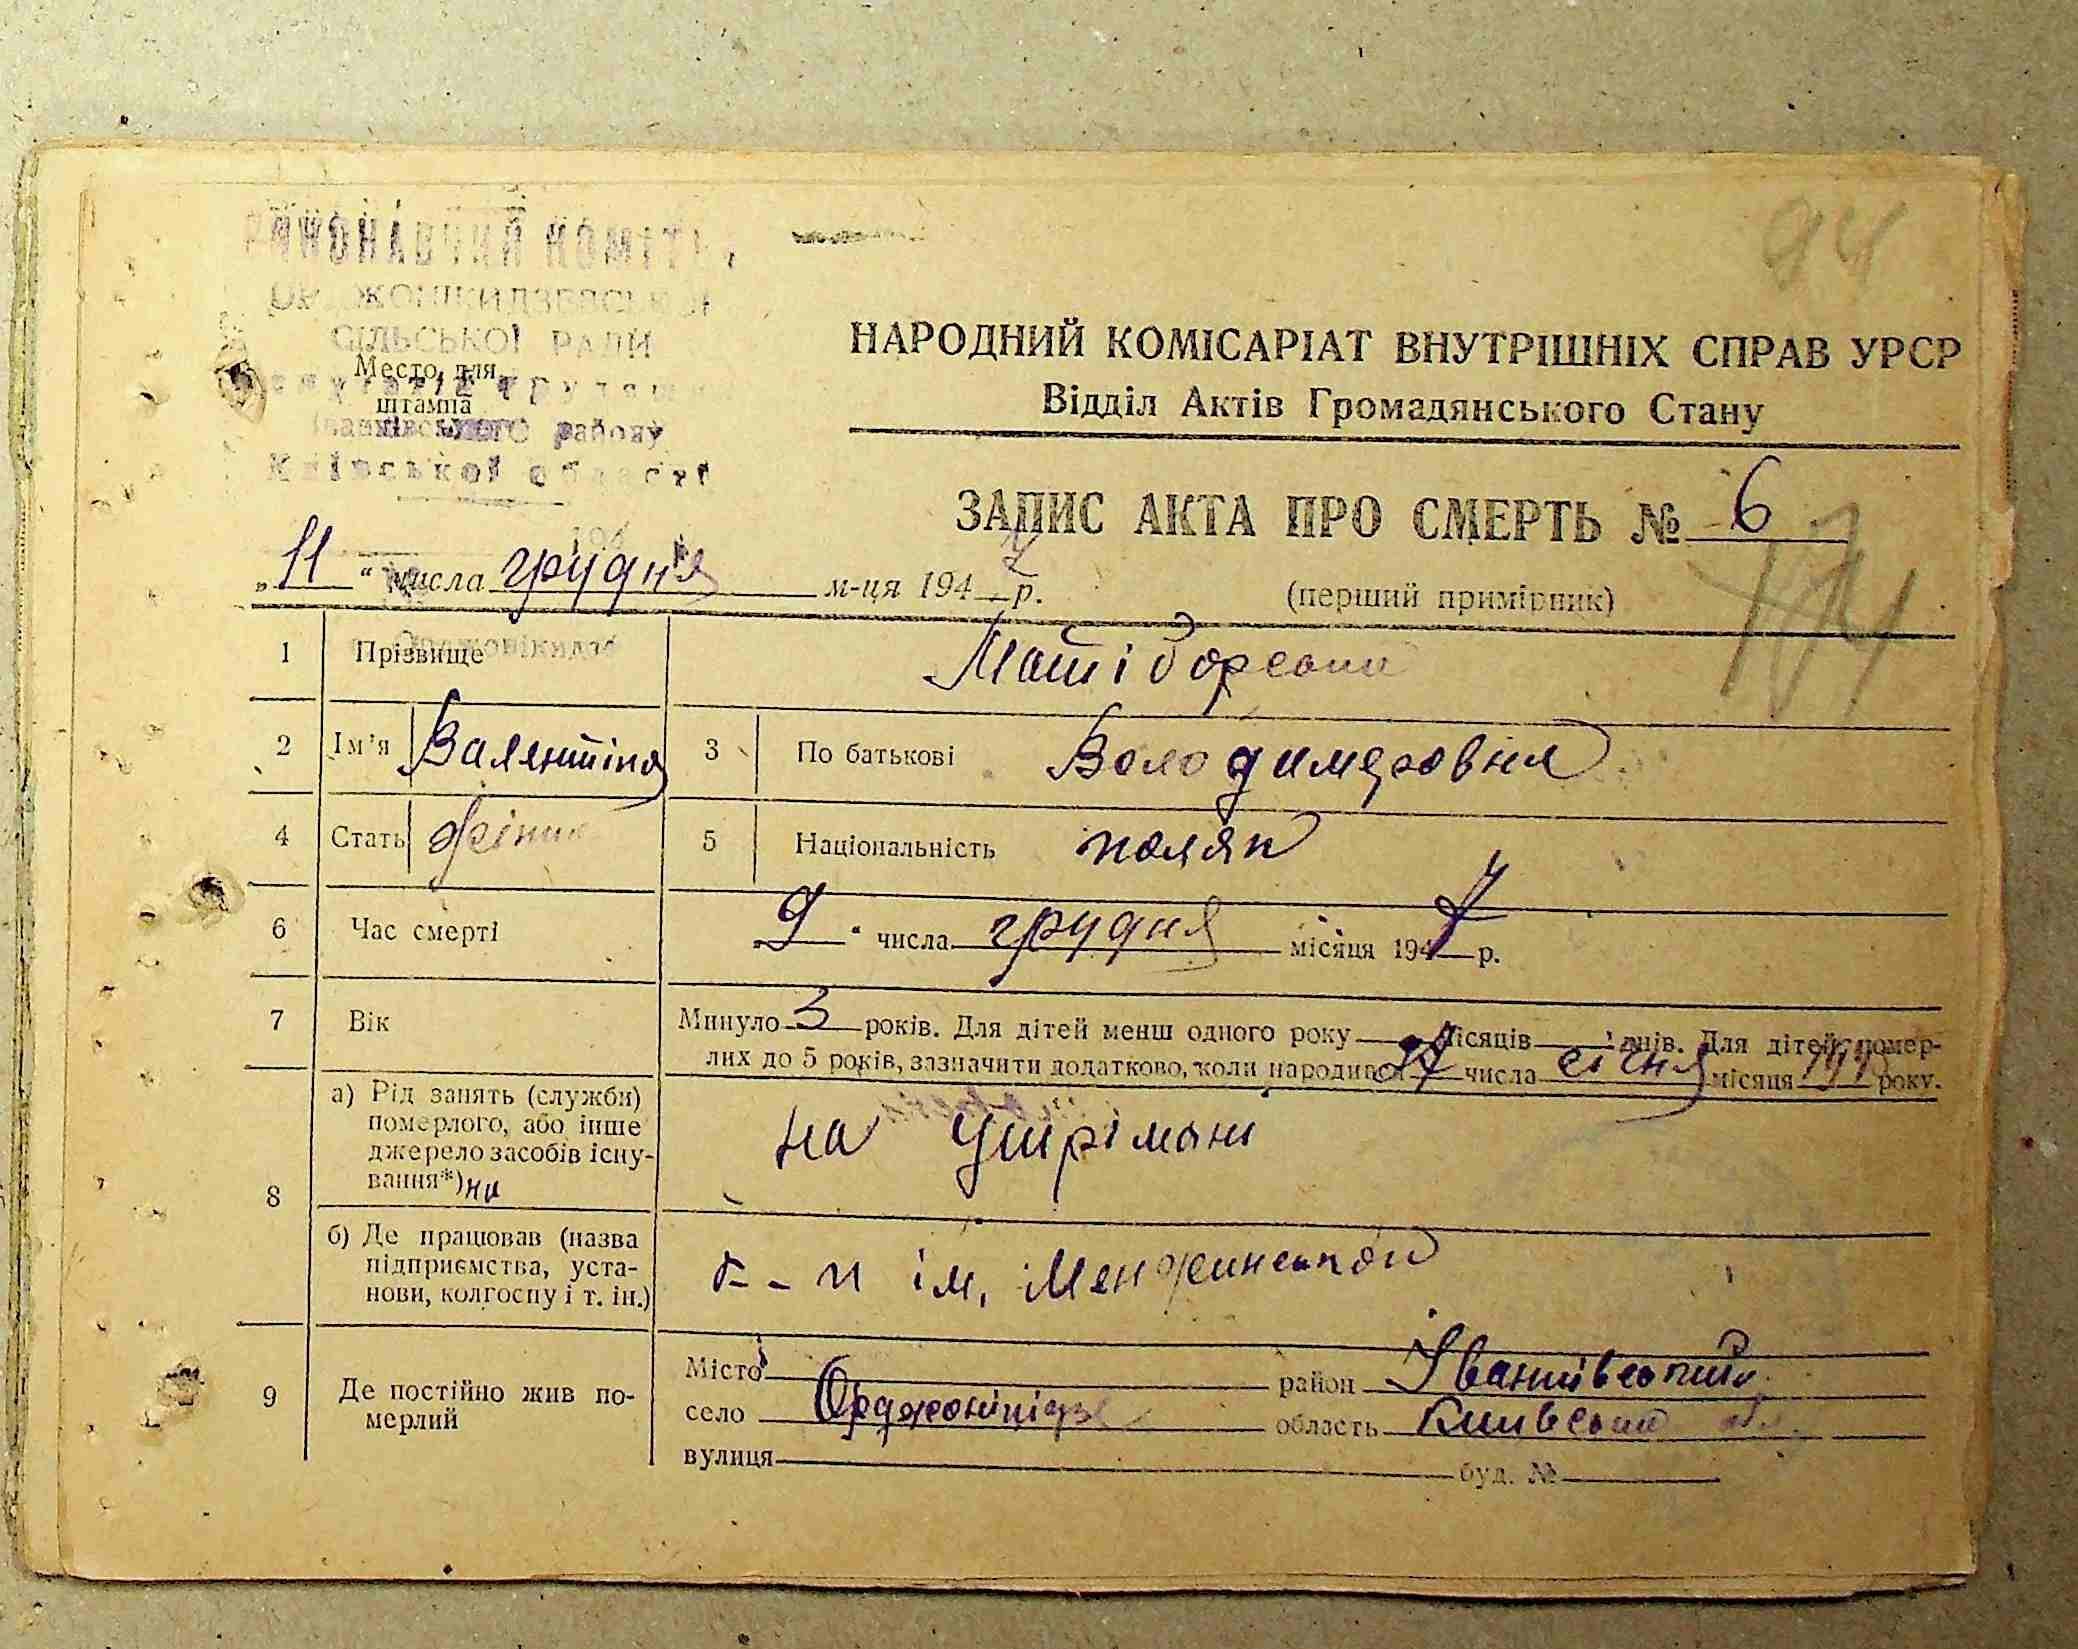 94
КОМІТ
СІЛЬСЬКОЇ РАДИ
Место для
штампа
району
Київської області
НАРОДНИЙ КОМІСАРІАТ ВНУТРІШНІХ СПРАВ УРСР
Відділ Актів Громадянського Стану
ЗАПИС АКТА ПРО СМЕРТЬ № 6
„11“ числа грудня м-ця 1947 р.
(перший примірник)
1 Прізвище
2 Ім'я Валентіна 3 По батькові Володимеровня
4 Стать 5 Національність поляк
6 Час смерті 9 “ числа грудня місяця 1947 р.
7 Вік Минуло 3 років. Для дітей менш одного року місяців днів. Для дітей, помер-
лих до 5 років, зазначити додатково, коли народився 27 числа січня місяця року.
8 а) Рід занять (служби)
померлого, або інше
джерело засобів існу-
вання*) на
на утрімані
б) Де працював (назва
підприємства, уста-
нови, колгоспу і т. ін.)
к-п ім. Менжинської
9 Де постійно жив по-
мерлий
Місто район Іванківський
село Орджонікідзе область Київська обл.
вулиця буд. №